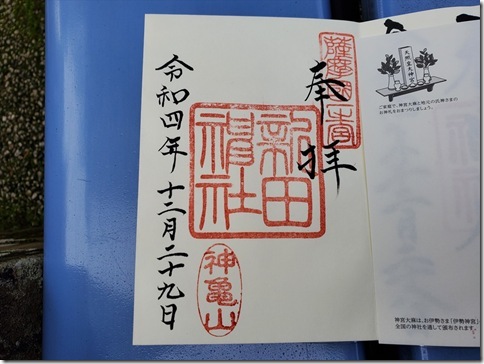 薩摩國一宮
奉拝
新田神社
神龜山
令和四年十二月二十九日
天照皇大神宮
ご家庭で、神宮大麻と地元の氏神さまの
お神札をおまつりしましょう。
神宮大麻は、お伊勢さま「伊勢神宮」
全国の神社を通して頒布されます。